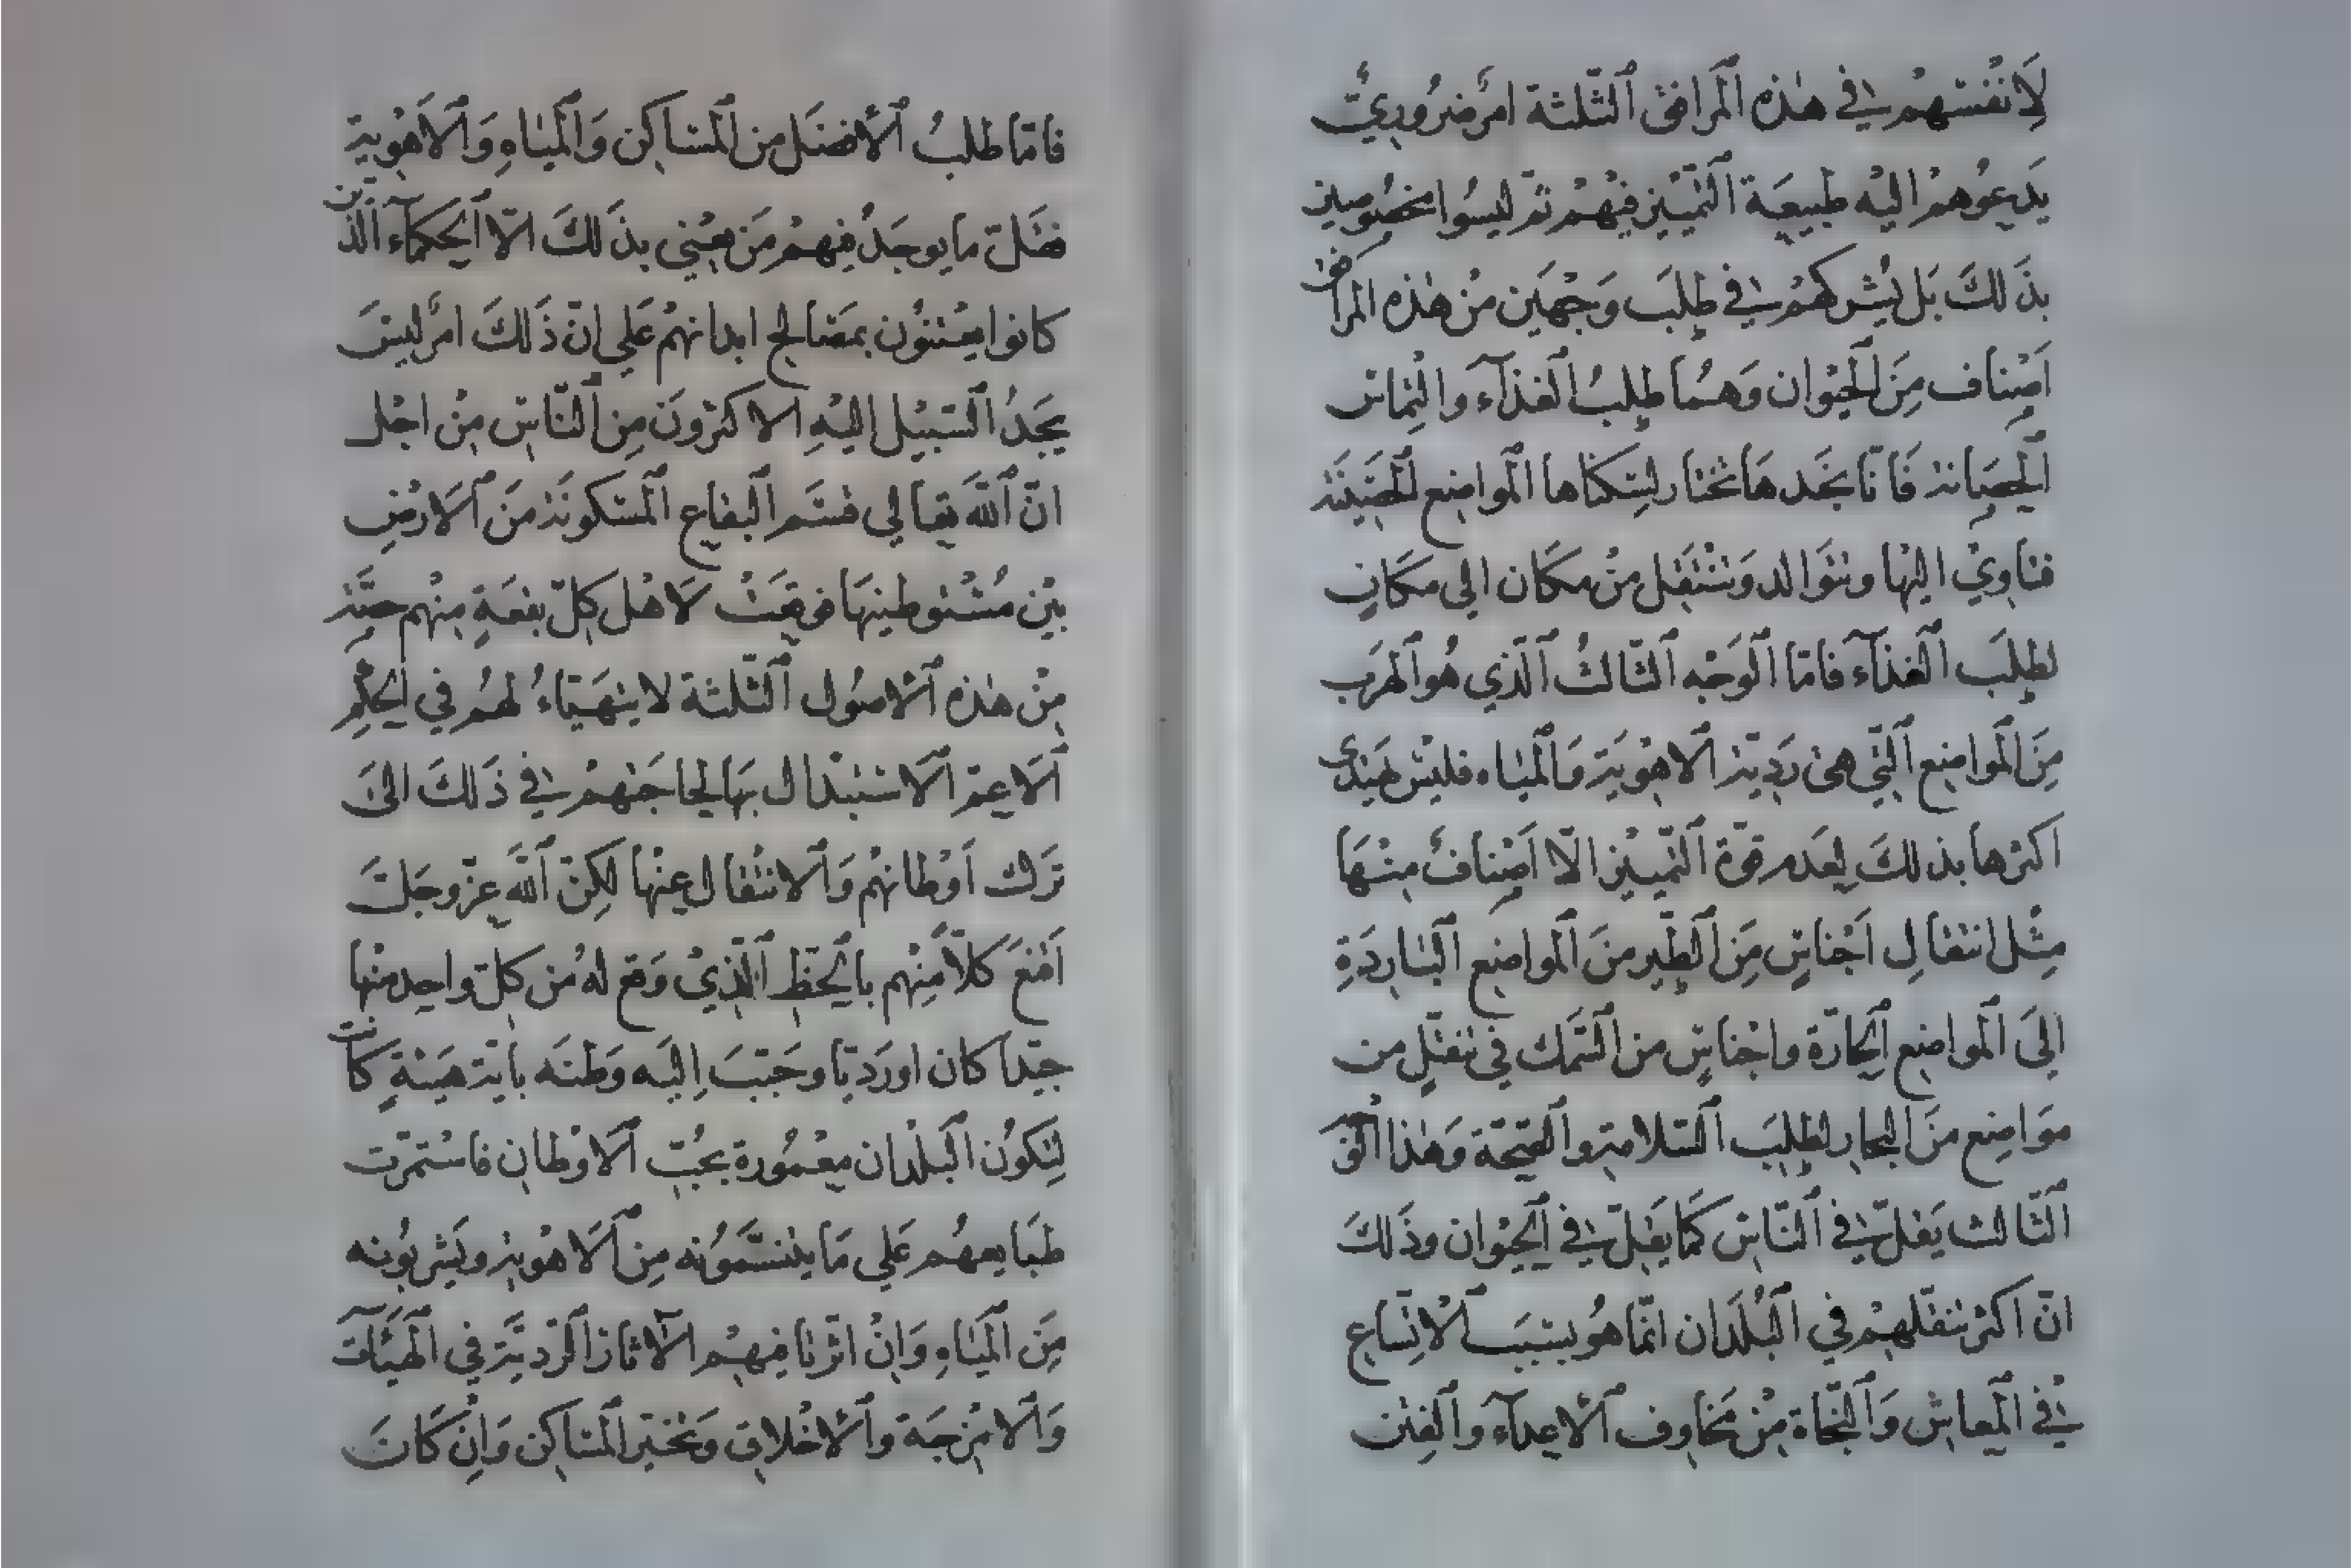 لِأَنْفُسِهِمْ فِي هٰذِهِ الْمَرَافِقِ الثَّلٰثَة امرٌ ضَرُورِيٌّ
يَدعُوهمْ اليْه طَبيعَة التَّمْيِيْز فِيْهِمْ ثمّ ليسُوا مخصُوصين
بذَلكَ بَل يُشركهُمْ فِي طلبَ وَجْهَين منْ هٰذه المرافق
اَصْناف مِنَ الْحيْوان وَهمُا طلبُ الغذآء والتِماس
الحصَانة فَانّا نجَدهَا تَختار لسِكناها الْمواضع الحَصينَة
فتاوِيْ اليْها وتتوَالد وَتنْتقل منْ مكَان الي مكَانٍ
لطلِبَ الْغذآء فامّا الْوَجْه الثالثُ الّذي هُو الهرَب
مِنَ الْمواضع الّتي هىَ رَديّة الاهْويَة وَالْميٰاه فليْسَ يَهتدى
اكثرها بذلكَ لِعَدم قوّة التّميْيز الّا اَصْنافٌ منْهَا
مِثْل انتقالِ اَجْناسٍ مِنَ الطَّير منَ الْمواضع الْبٰاردَةِ
الِىَ الْمواضع الحٰارّة واجْناسٍ من السَّمك في تنقّلٍ من
موَاضِع منَ البحار لطلِبَ السّلامة والصّحّة وَهٰذا
الثّالث يَقلّ فِي النّاسِ كمَا يَقلّ فِي الْحيْوان وذَلكَ
انّ اكثر تنقّلهمْ في الْبُلدَان انّما هوُ بسَببَ الْاتِّساع
فِي الْمعاش وَالنّجاة مِنْ مَخاوِف الْأعدآء وَالْفِتن
فامّا طلبُ الْأفضَل من الْمسَاكِن وَالْميٰاهِ وَالْاَهْوِيَة
فقَلّ ما يوجَدُ فيهمْ مَن مَعْني بذَلكَ الّا الْحكمآء الّذين
كانوا معْتنوُن بمصَالح ابدانهمْ عَلي انّ ذَلكَ امرٌ ليسَ
يجَدُ السّبيْل اليْهِ الاكثرونَ مِن النّاسِ مِنْ اجْل
انّ اللّٰهَ تعالي قسّم البقاع الْمسْكونَة منَ الْاَرْضِ
بيْن مُسْتوطنيها فوقعَتْ لاَهْل كلّ بقعَةٍ منْهم حصّة
مِنْ هٰذه الْأصوُل الثّلٰثة لا يتهيّاءُ لهمُ في الحُكْم
الْاَعمّ الْاسْتبْدال بهَا لحاجَتهمْ فِي ذَلكَ الىَ
تَرك اَوْطانهمْ وَالْانتْقال عنْها لكِنّ اللّٰه عزّ وجَلّ
اَقنعَ كلّاً مِنْهم بالْحَظّ الّذيْ وَقع لهُ من كلّ واحِد منها
جيّداً كان او رَديّا وحَبّبَ اِليَه وَطنَه بايّة هَيئةٍ كانت
لِتكوُن الْبلْدان معْمُورة بحُبّ الْاَوْطان فاسْتمرّت
طبَايعهُم عَلي مَا يتنسَّموُنه مِن الْاَهْويَة ويَشربوُنه
مِن الْميٰاهِ وَانْ اثّرتا فيهمْ الآثار الرّديّة في الْهَيئآت
وَالْامْزجَة والْأخْلاق وَتخيّر الْمسَاكن وَانْ كَانَ